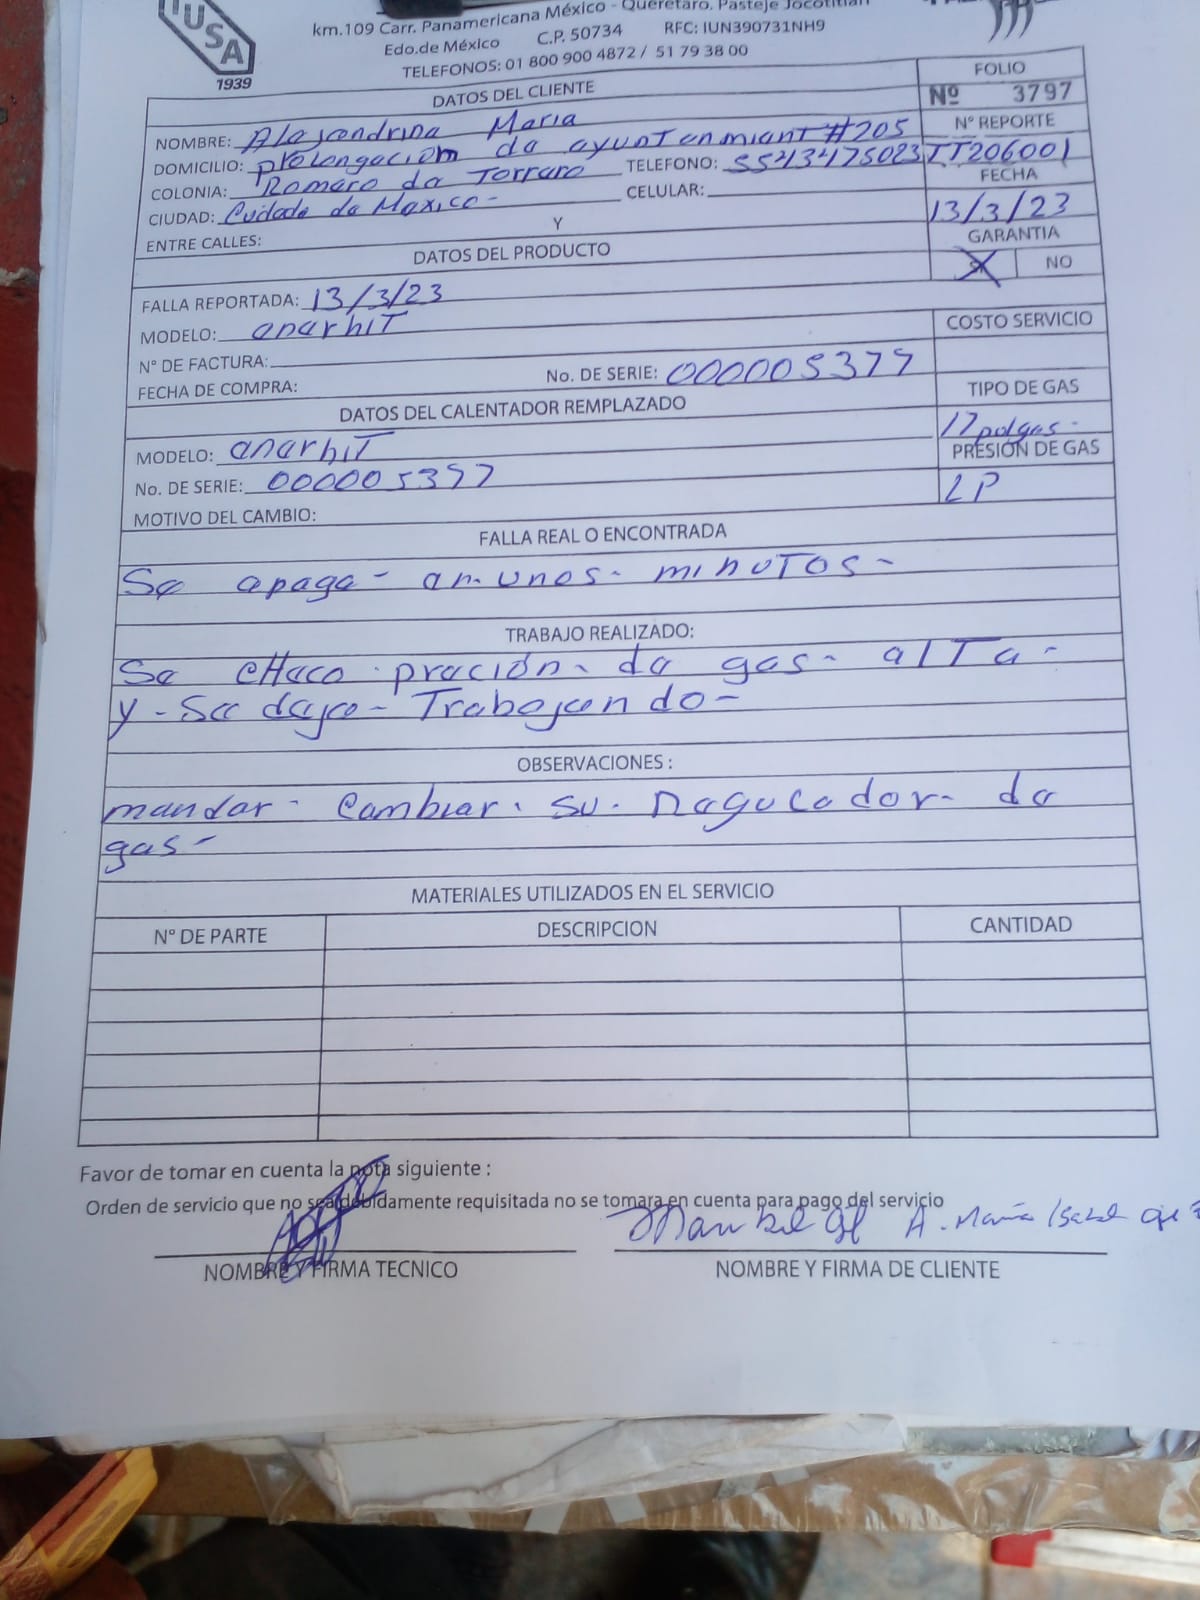 IUSA
1939
km.109 Carr. Panamericana México - Querétaro. Pastejé Jocotitlán
Edo.de México C.P. 50734 RFC: IUN390731NH9
TELEFONOS: 01 800 900 4872 / 51 79 38 00
DATOS DEL CLIENTE
FOLIO
Nº 3797
NOMBRE: Alejandrina Maria
Nº REPORTE
DOMICILIO: prolongaciom da ayuntanmiant #205
TT206001
COLONIA: Romaro da Torraro TELEFONO: 5543475023
FECHA
CIUDAD: Cuidada da Maxico- CELULAR:
13/3/23
ENTRE CALLES: Y
GARANTIA
DATOS DEL PRODUCTO
SI NO
FALLA REPORTADA: 13/3/23
MODELO: anarhiT
COSTO SERVICIO
Nº DE FACTURA:
FECHA DE COMPRA: No. DE SERIE: 000005377
TIPO DE GAS
DATOS DEL CALENTADOR REMPLAZADO
17 pdgas-
MODELO: anarhiT
PRESIÓN DE GAS
No. DE SERIE: 000005397
LP
MOTIVO DEL CAMBIO:
FALLA REAL O ENCONTRADA
Se apaga- an-unos- minuTos-
TRABAJO REALIZADO:
Se cHaco pración- da gas- alTa-
y-Sa dajo- Trabajando-
OBSERVACIONES :
mandar- Cambiar- su- Ragucador- da
gas-
MATERIALES UTILIZADOS EN EL SERVICIO
Nº DE PARTE DESCRIPCION CANTIDAD
Favor de tomar en cuenta la nota siguiente :
Orden de servicio que no sea debidamente requisitada no se tomara en cuenta para pago del servicio
A. María Isabel
NOMBRE Y FIRMA TECNICO NOMBRE Y FIRMA DE CLIENTE